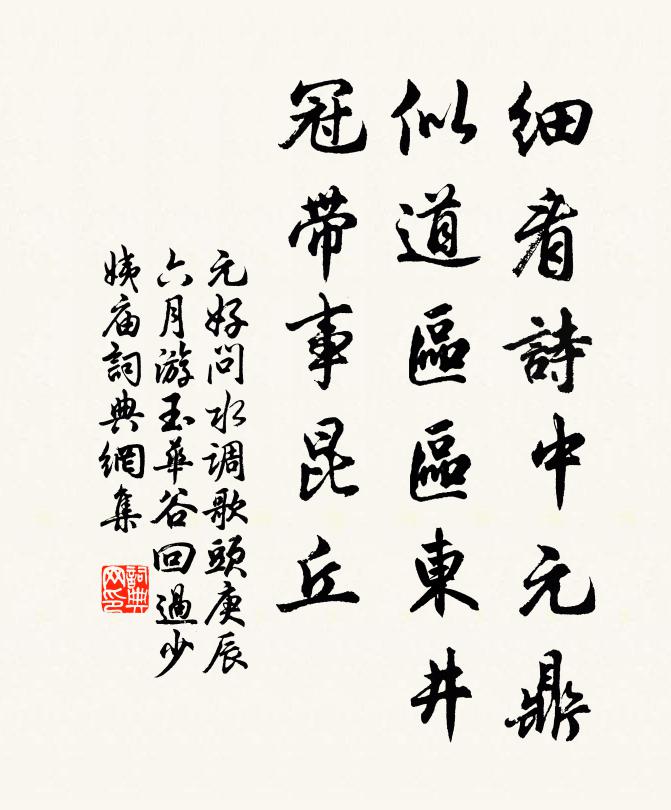 细看詩中元鼎
似道區區東井
冠帶事昆丘
元好问水调歌頭庚辰
六月游玉華谷回過少
姨庙詞典網集
詞典网印